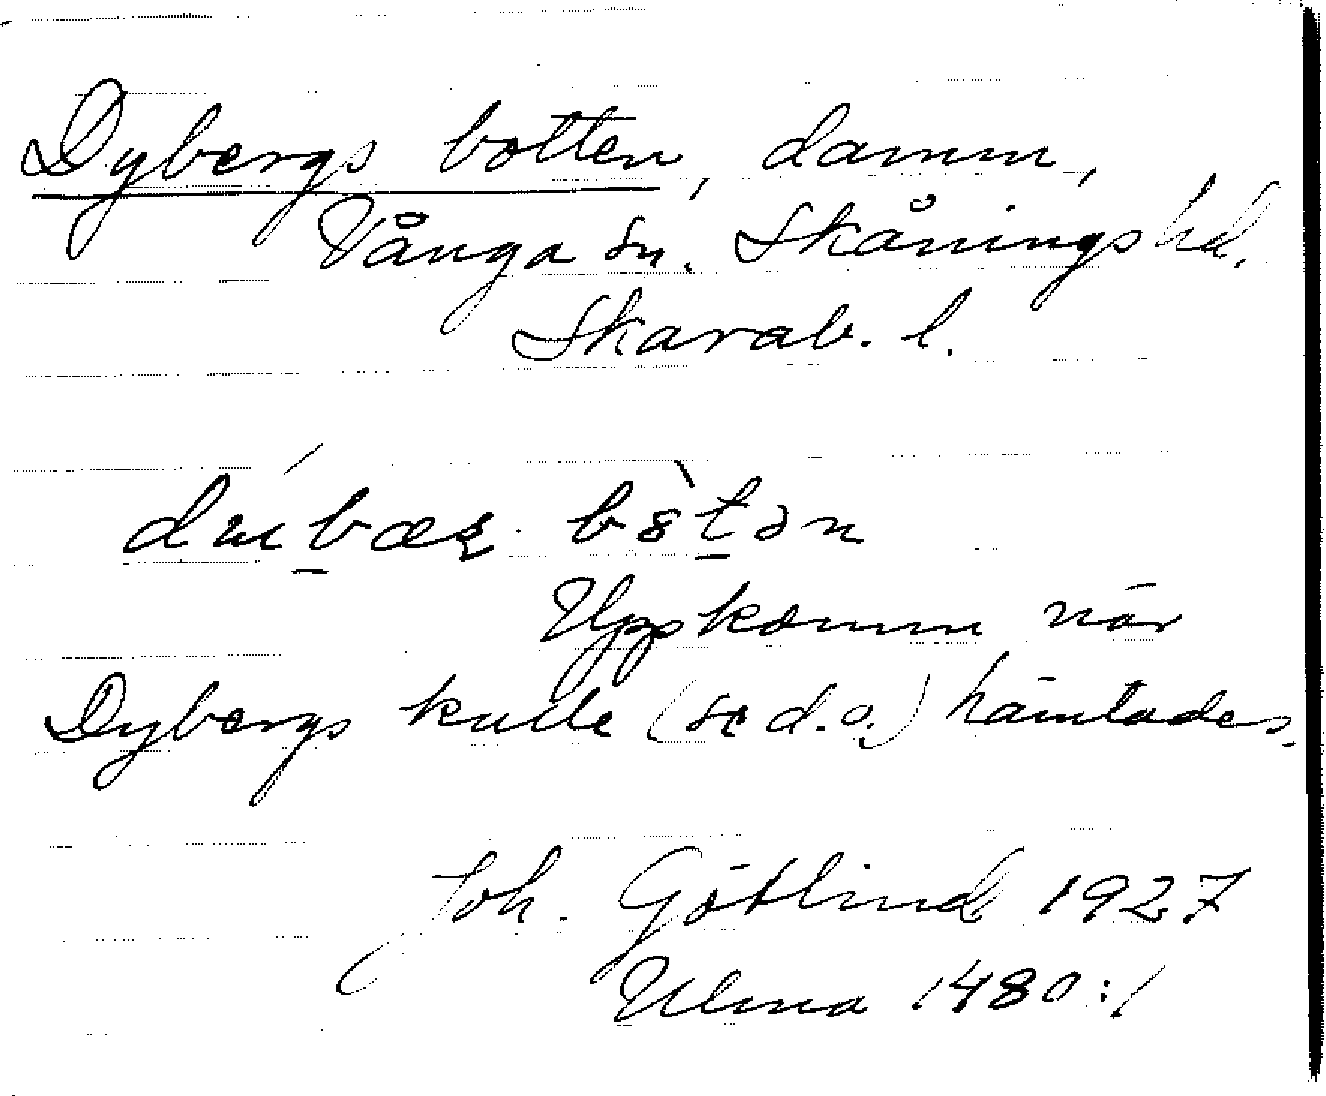 Dybergs botten, damm,
Vånga sn. Skånings hd.
Skarab. l.
Uppkomm när
Dybergs kulle (se d.o.) hämtades.
Joh. Götlind 1927
Ulma 1480:1